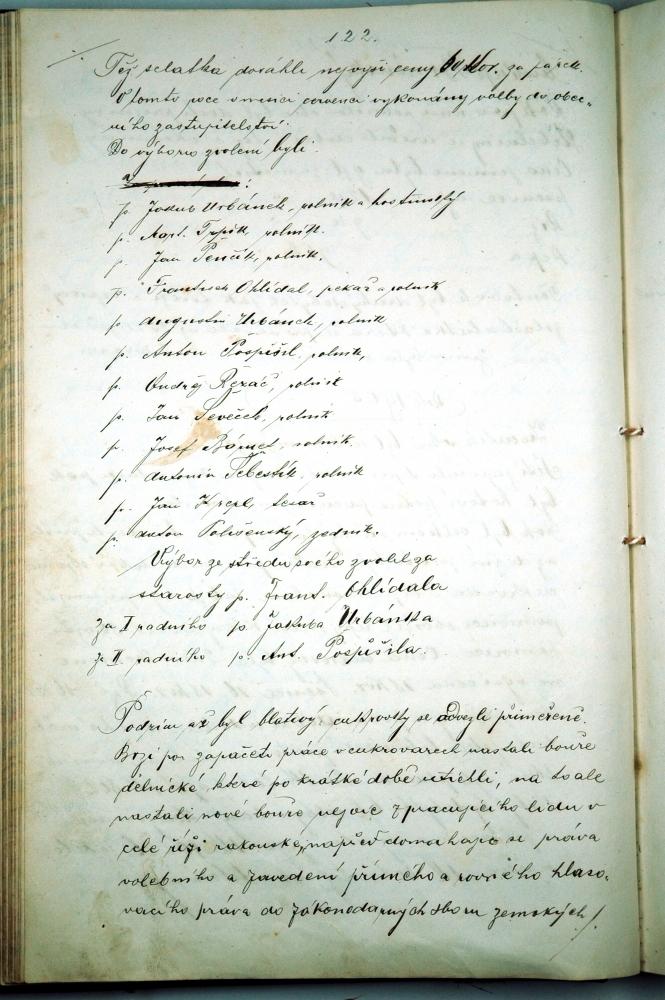 122.
Též selatka dosáhli nejvyší ceny 60 Kor. za párek.
V tomto roce v měsíci červenci vykonány volby do obec-
ního zastupitelství:
Do výboru zvolení byli
p. Jakub Urbánek, rolník a hostinský
p. Mart. Trpík, rolník.
p. Jan Penčík, rolník.
p. František Ohlídal, pekař a rolník
p. Augustin Urbánek, rolník
p. Anton Pospíšil, rolník,
p. Ondřej Řezáč, rolník
p. Jan Ševeček, rolník
p. Josef rolník.
p. Antonín Šebestík, rolník
p. Jan Krepl, tesař
p. Anton Polišenský, zedník.
Výbor ze středu svého zvolil za
starosty p. Frant. Ohlídala
za I radního p. Jakuba Urbánka
za II. radního p. Ant. Pospíšila.
Podzim až byl blativý, cukrovky se odvezli přiměřeně.
Brzi po započetí práce v cukrovarech nastali bouře
dělnické které po krátké době utichli, na to ale
nastali nové bouře nejvíc pracujícího lidu v
celé říši rakouské, napřed domahajíc se práva
volebního a zavedení přímého a rovného hlaso-
vacího práva do zákonodarných sboru zemských /.